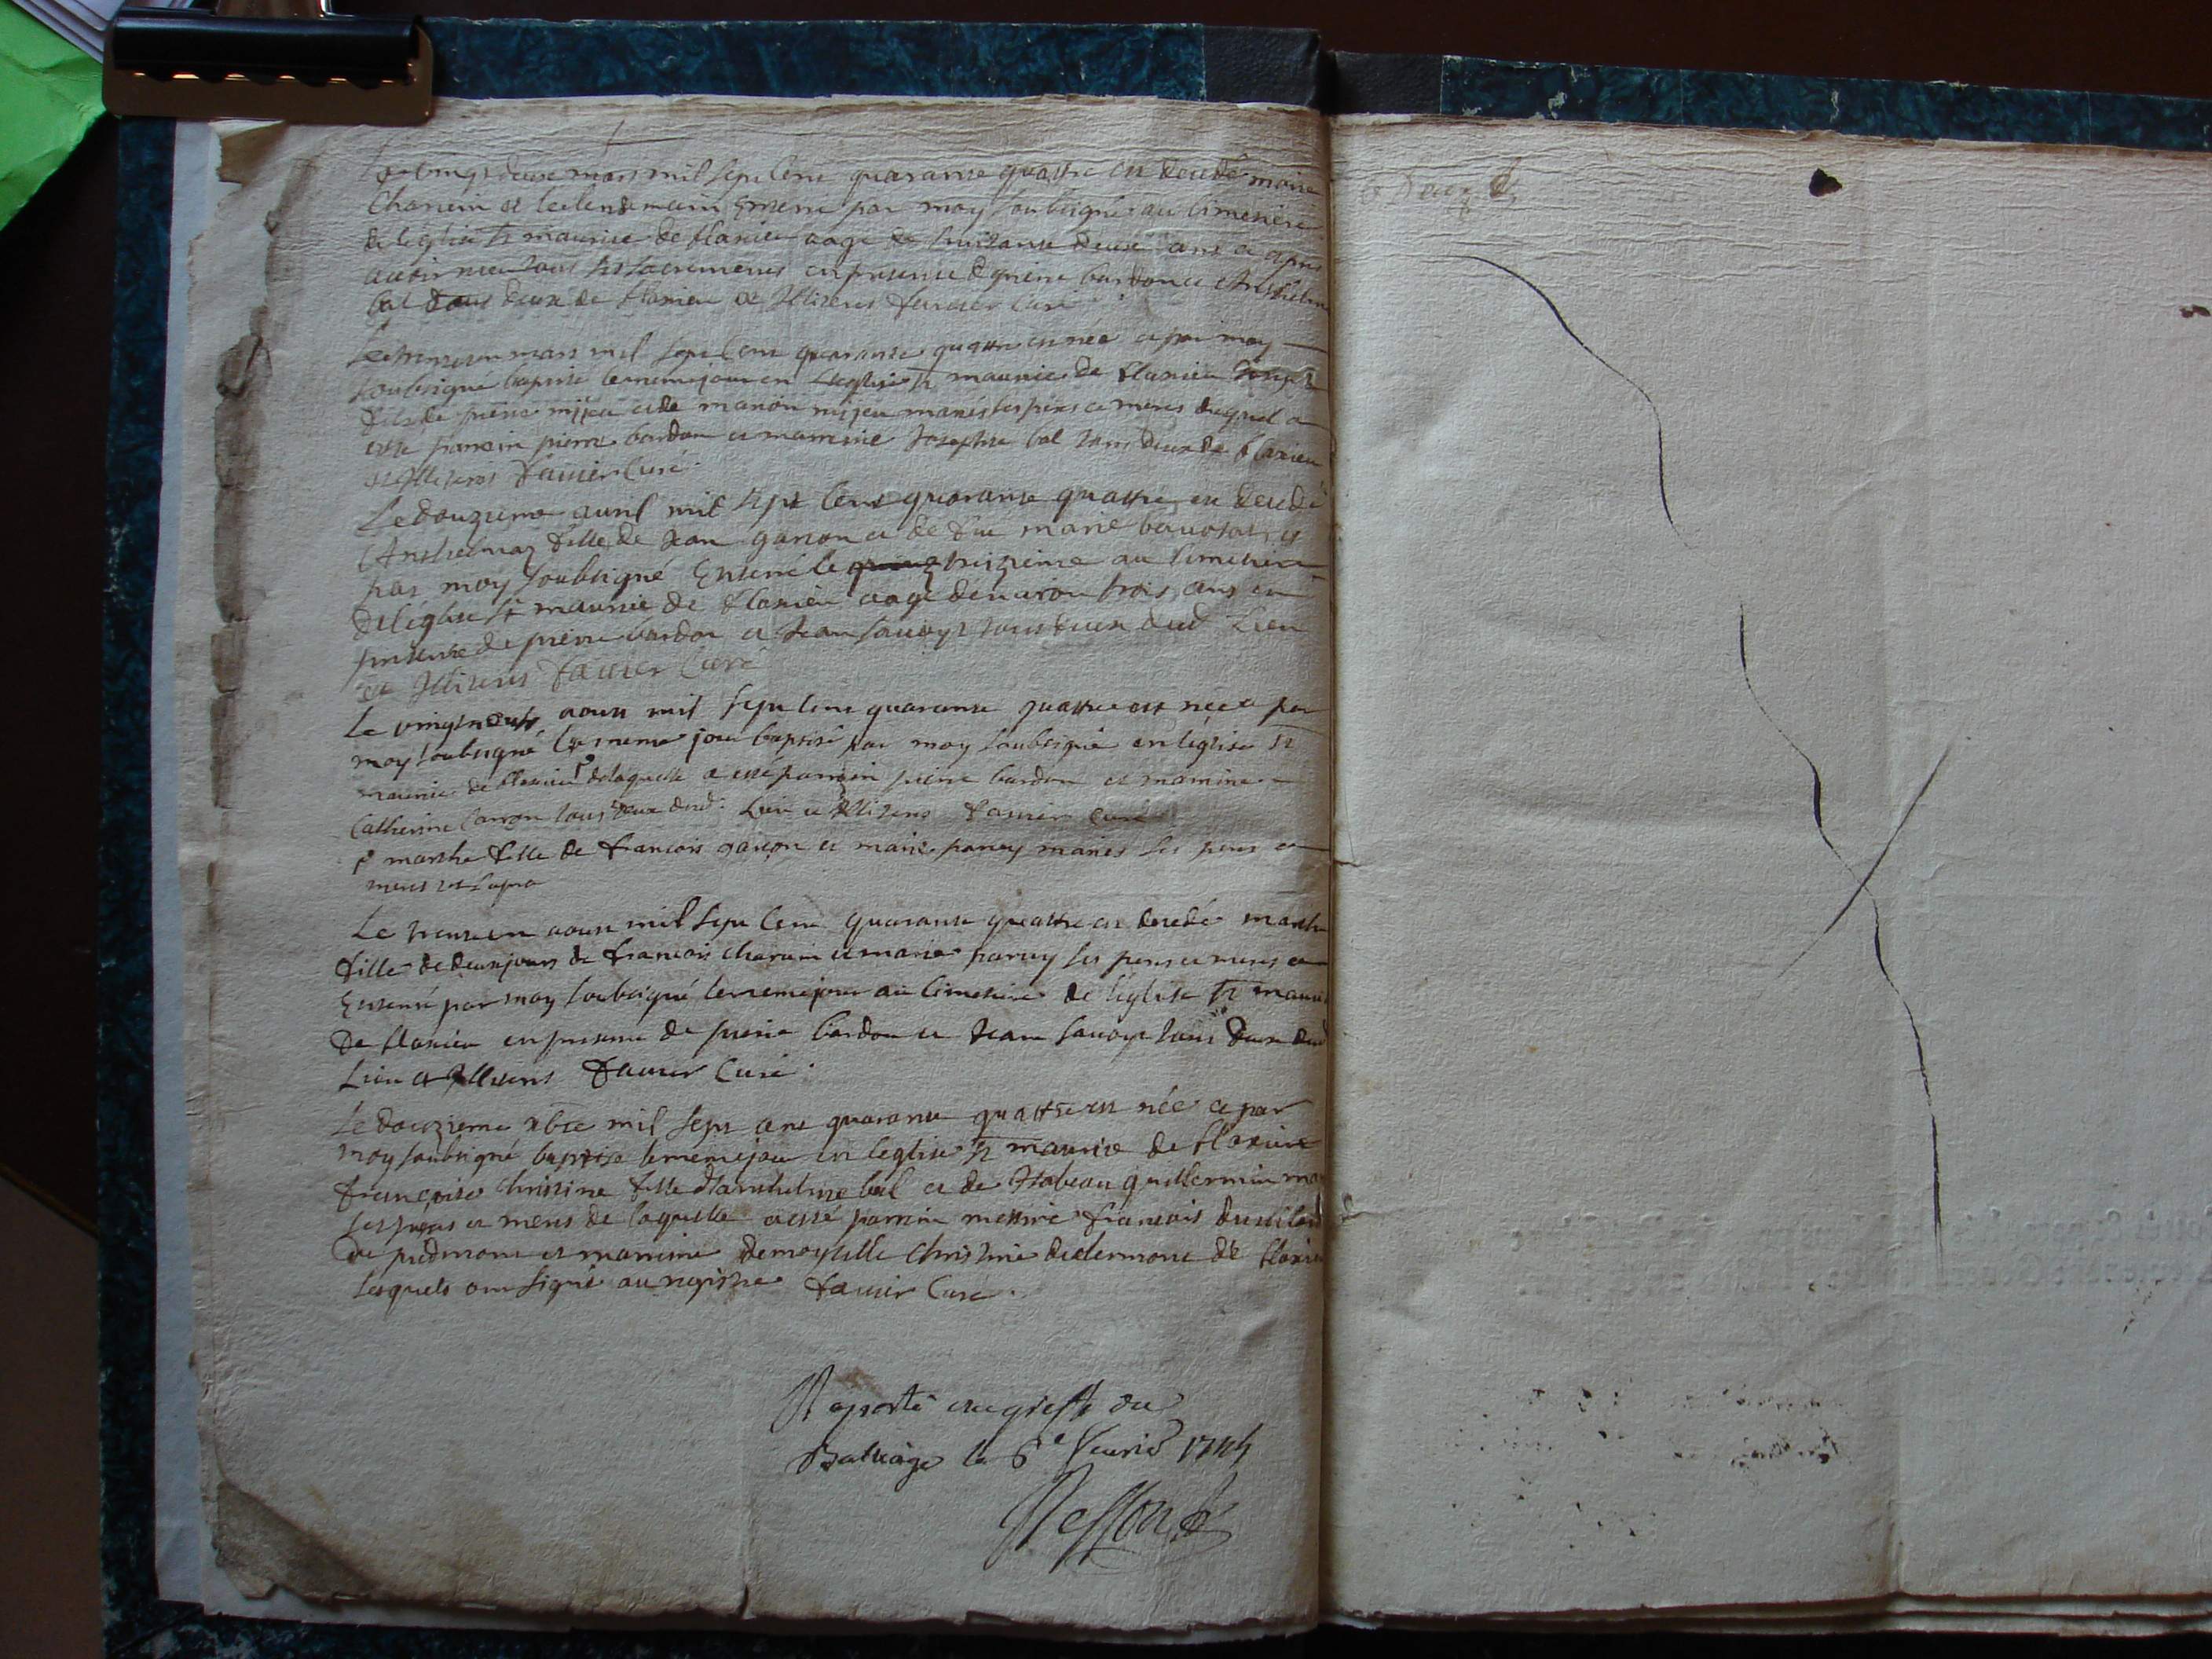 Le vingt deux mars mil sept cent quarante quattre est decedé
Charein et le lendemain Enterré par moy soubsigné au cimetiere
de leglise st maurice de flaxieu aagé de soixante deux ans et apres
avoir receu tous ses sacrements en presence de pierre bardon et Anthelme
bal tous deux de flaxieu et Illiterés favier Curé
Le trente un mars mil sept cent quarante quattre est née et par moy
soubsigné baptisé le meme jour en Leglise st maurice de flaxieu
fils de pierre mijeu et de manon mijeu mariés ses peres et meres duquel a
esté parrein pierre bardon et marreine Josephte bal tous deux de flaxieu
et Illiterés favier Curé
Le douzieme avril mil sept cent quarante quattre est decedé
Anthelmaz fille de Jean garson et de feu marie et
par moy soubsigné Enterré le treizieme au cimetiere
de leglise st maurice de flaxieu aagé d'environ trois ans en
presence de pierre bardon et Jean savoye tous deux dud Lieu
et Illiterés favier Curé
Le vingt neuf aoust mil sept cent quarante quattre est née et par
moy soubsigné le meme jour baptisé par moy soubsigné en léglise st
maurice de flaxieu de laquelle a esté parrein pierre bardon et marreine
Catherine Carron tous deux dud. Lieu et Illiterés favier curé
marthe fille de francois garçon et marie parvy mariés ses peres et
meres
Le trente un aoust mil sept cent quarante quattre est decedé marthe
fille de deux jours de francois charein et marie parvy ses peres et meres et
Enterré par moy soubsigné le meme jour au Cimetiere de léglise st maurice
de flaxieu en presence de pierre bardon et Jean savoye tous deux dud
Lieu et Illiterés favier Curé
Le douzieme xbre mil sept cent quarante quattre est née et par
moy soubsigné baptisé le meme jour en leglise st maurice de flaxieu
françoise Christine fille d'anthelme bal et de Isabeau guillermin
ses peres et meres de laquelle a esté parrein messire francois
de piedmont et marreine demoyselle Christine de flaxieu
lesquels ont signé au registre favier Curé
Raporté au greffe du
Baliage le 6e fevrier 1745